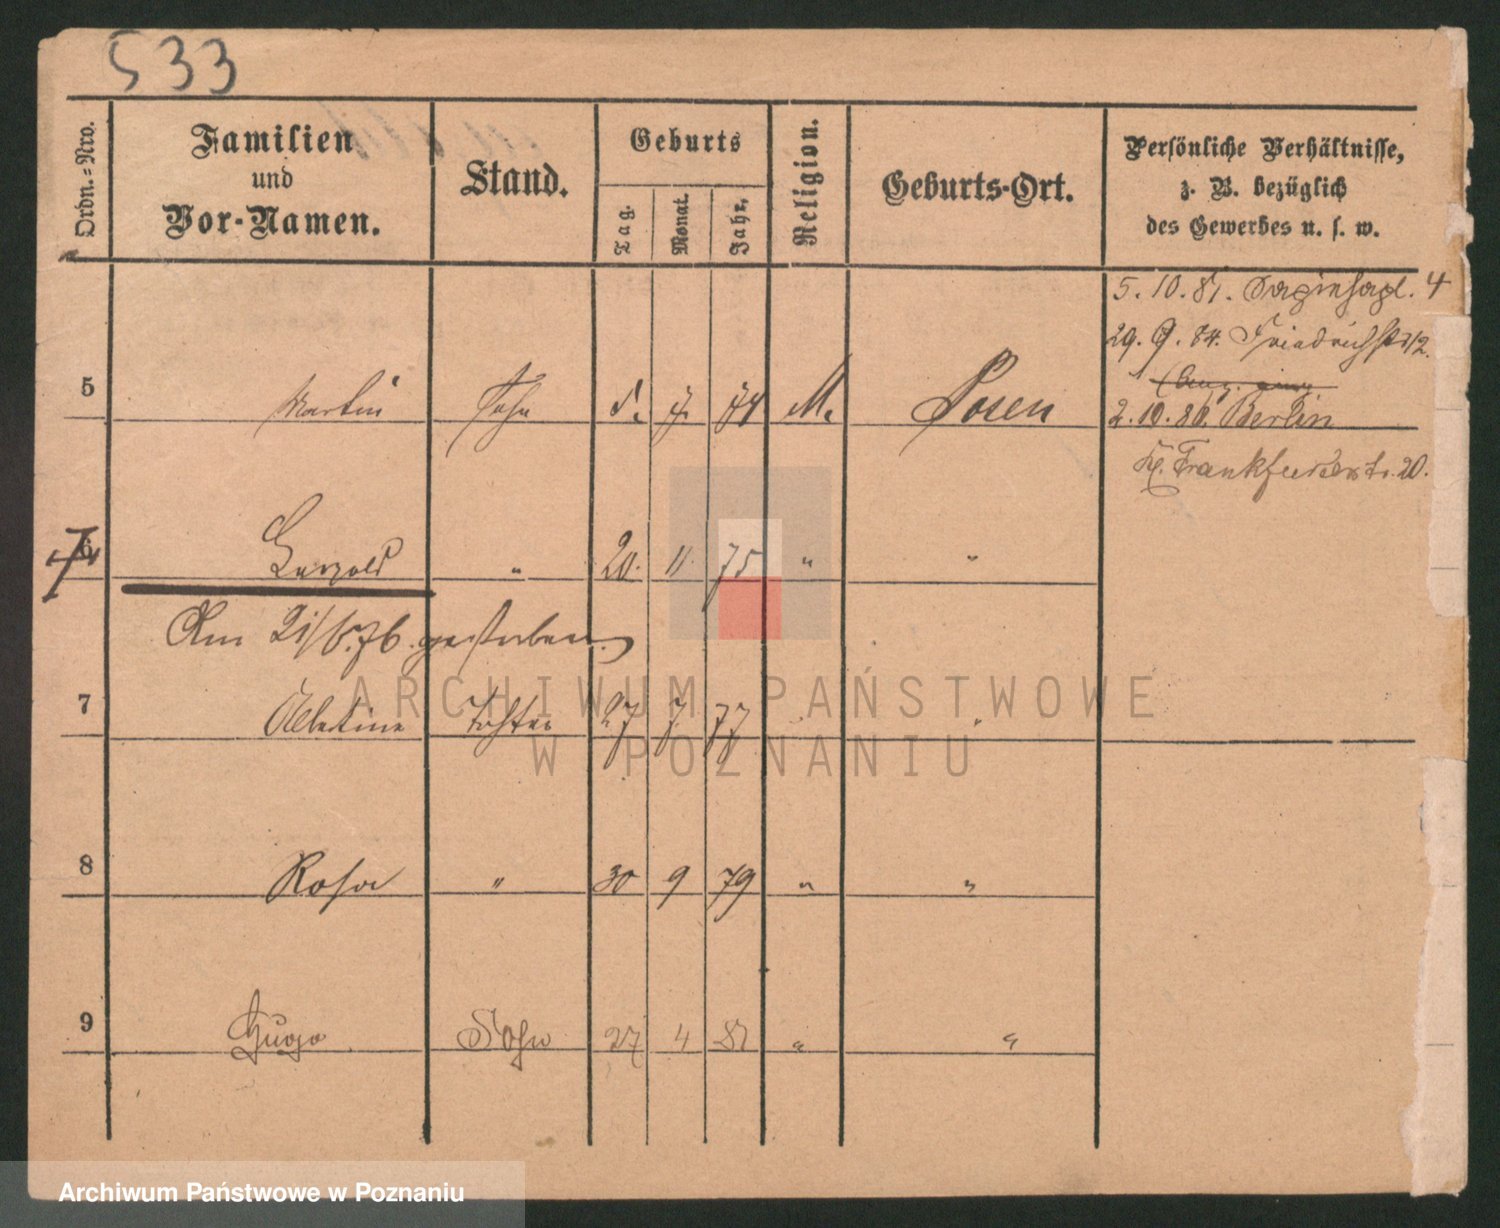 533
Ordn.-Nro.
Familien und Vor-Namen.
Stand.
Geburts
Tag.
Monat.
Jahr.
Religion.
Geburts-Ort.
Persönliche Verhältnisse,
z. B. bezüglich
des Gewerbes u. s. w.
5. 10. 81. 4
29. 9. 84. Friedrichstr 12.
5 Martin Sohn 5. 7. 74 M. Posen
2. 10. 86. Berlin
Kl. Frankfurterstr. 20.
6 Leopold " 20. 11. 75 " "
Am 21/6.76. gestorben.
7 Albertine Tochter 27 7. 77 " "
8 Rosa " 30 9 79 " "
9 Hugo Sohn 27 4 81 " "
ARCHIWUM PAŃSTWOWE
W POZNANIU
Archiwum Państwowe w Poznaniu